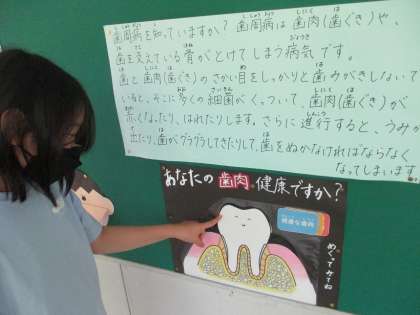 歯周病を知っていますか？歯周病は歯肉(歯ぐき)や、
歯を支えている骨がとけてしまう病気です。
歯と歯肉(歯ぐき)のさかい目をしっかりと歯みがきしないで
いると、そこに多くの細菌がくっついて、歯肉(歯ぐき)が
赤くなったり、はれたりします。さらに進行すると、うみが
出たり、歯がグラグラしてきたりして、歯をぬかなければならなく
なってしまいます。
あなたの歯肉、健康ですか？
健康な歯肉
めくってみてね